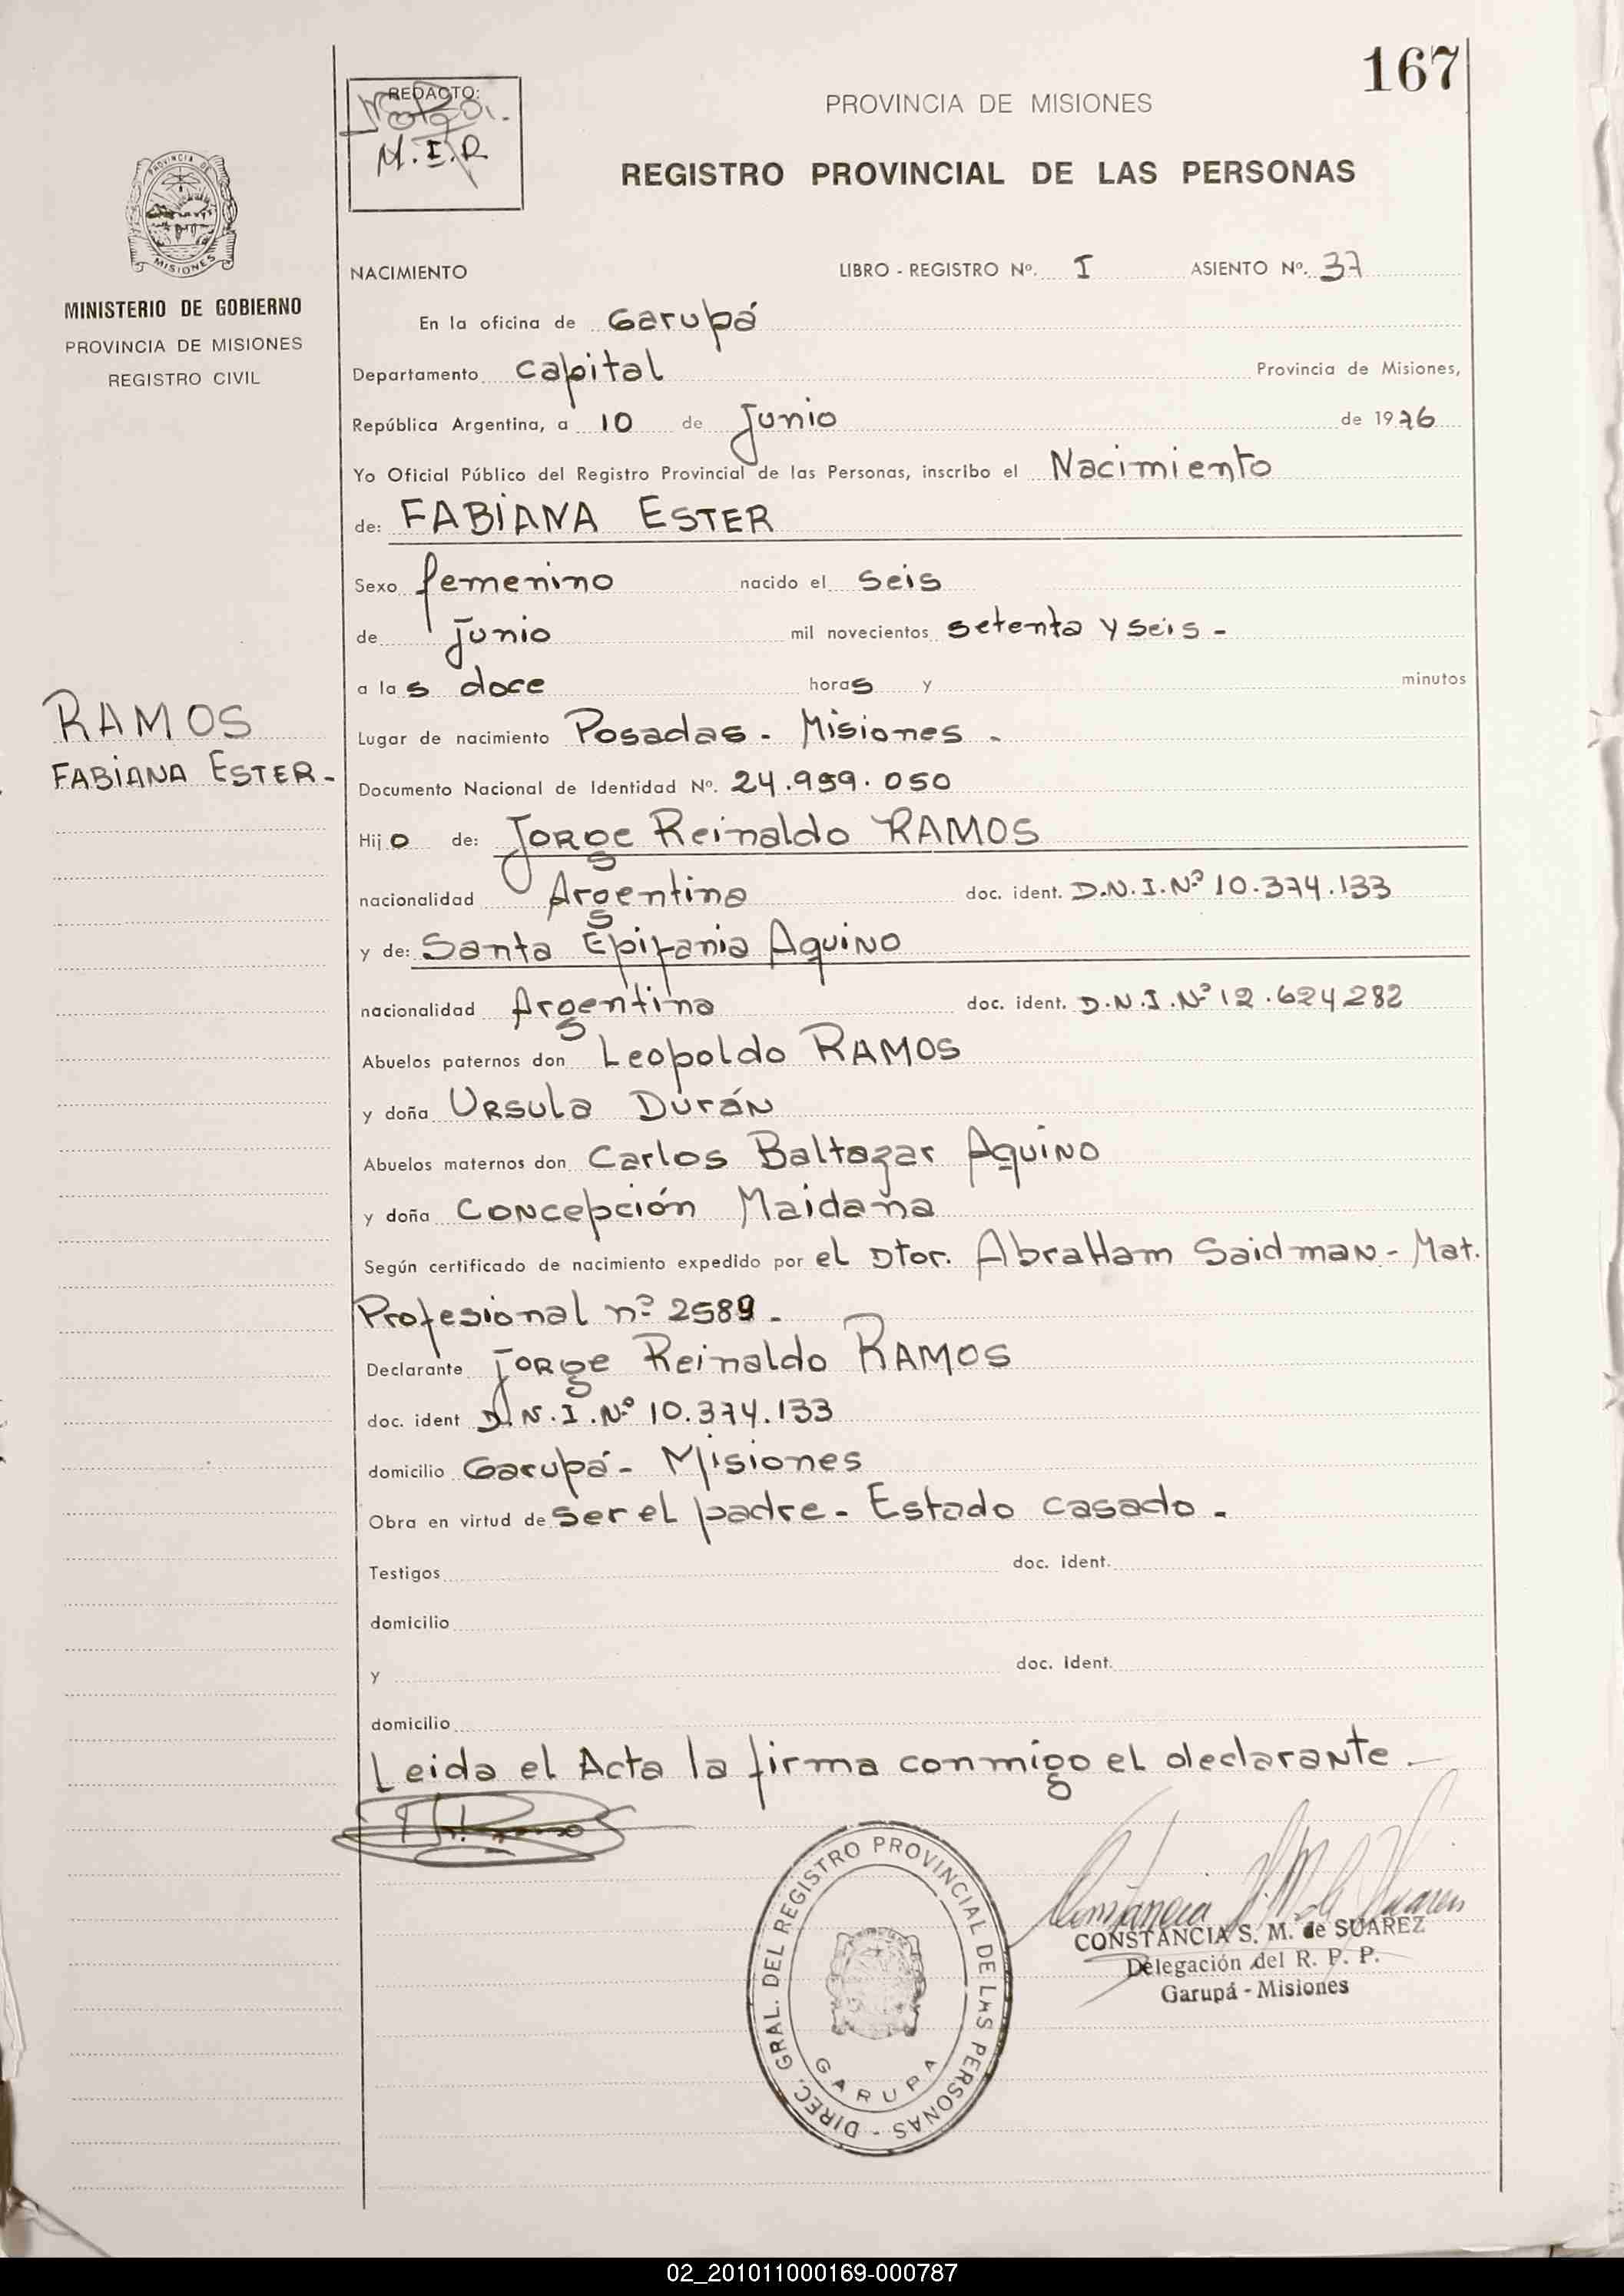 167
REDACTO:
M.I.R
PROVINCIA DE MISIONES
REGISTRO PROVINCIAL DE LAS PERSONAS
PROVINCIA DE
MISIONES
MINISTERIO DE GOBIERNO
PROVINCIA DE MISIONES
REGISTRO CIVIL
NACIMIENTO LIBRO - REGISTRO Nº. I ASIENTO Nº. 37
En la oficina de Garupá
Departamento Capital Provincia de Misiones,
República Argentina, a 10 de Junio de 1976
Yo Oficial Público del Registro Provincial de las Personas, inscribo el Nacimiento
de: FABIANA ESTER
Sexo femenino nacido el seis
de Junio mil novecientos setenta y seis -
a las doce horas y minutos
RAMOS
FABIANA ESTER -
Lugar de nacimiento Posadas - Misiones -
Documento Nacional de Identidad Nº. 24.959.050
Hijo de: Jorge Reinaldo RAMOS
nacionalidad Argentina doc. ident. D.N.I.Nº 10.374.133
y de: Santa Epifania Aquino
nacionalidad Argentina doc. ident. D.N.I.Nº 12.624.282
Abuelos paternos don Leopoldo RAMOS
y doña Ursula Durán
Abuelos maternos don Carlos Baltazar Aquino
y doña Concepción Maidana
Según certificado de nacimiento expedido por el Dtor. Abraham Saidman - Mat.
Profesional nº 2589 -
Declarante Jorge Reinaldo RAMOS
doc. ident D.N.I.Nº 10.374.133
domicilio Garupá - Misiones
Obra en virtud de ser el padre - Estado casado -
Testigos doc. ident.
domicilio
y doc. ident.
domicilio
Leida el Acta la firma conmigo el declarante -
DIREC. GRAL. DEL REGISTRO PROVINCIAL DE LAS PERSONAS -
GARUPA
CONSTANCIA S. M. de SUAREZ
Delegación del R. P. P.
Garupá - Misiones
02_201011000169-000787